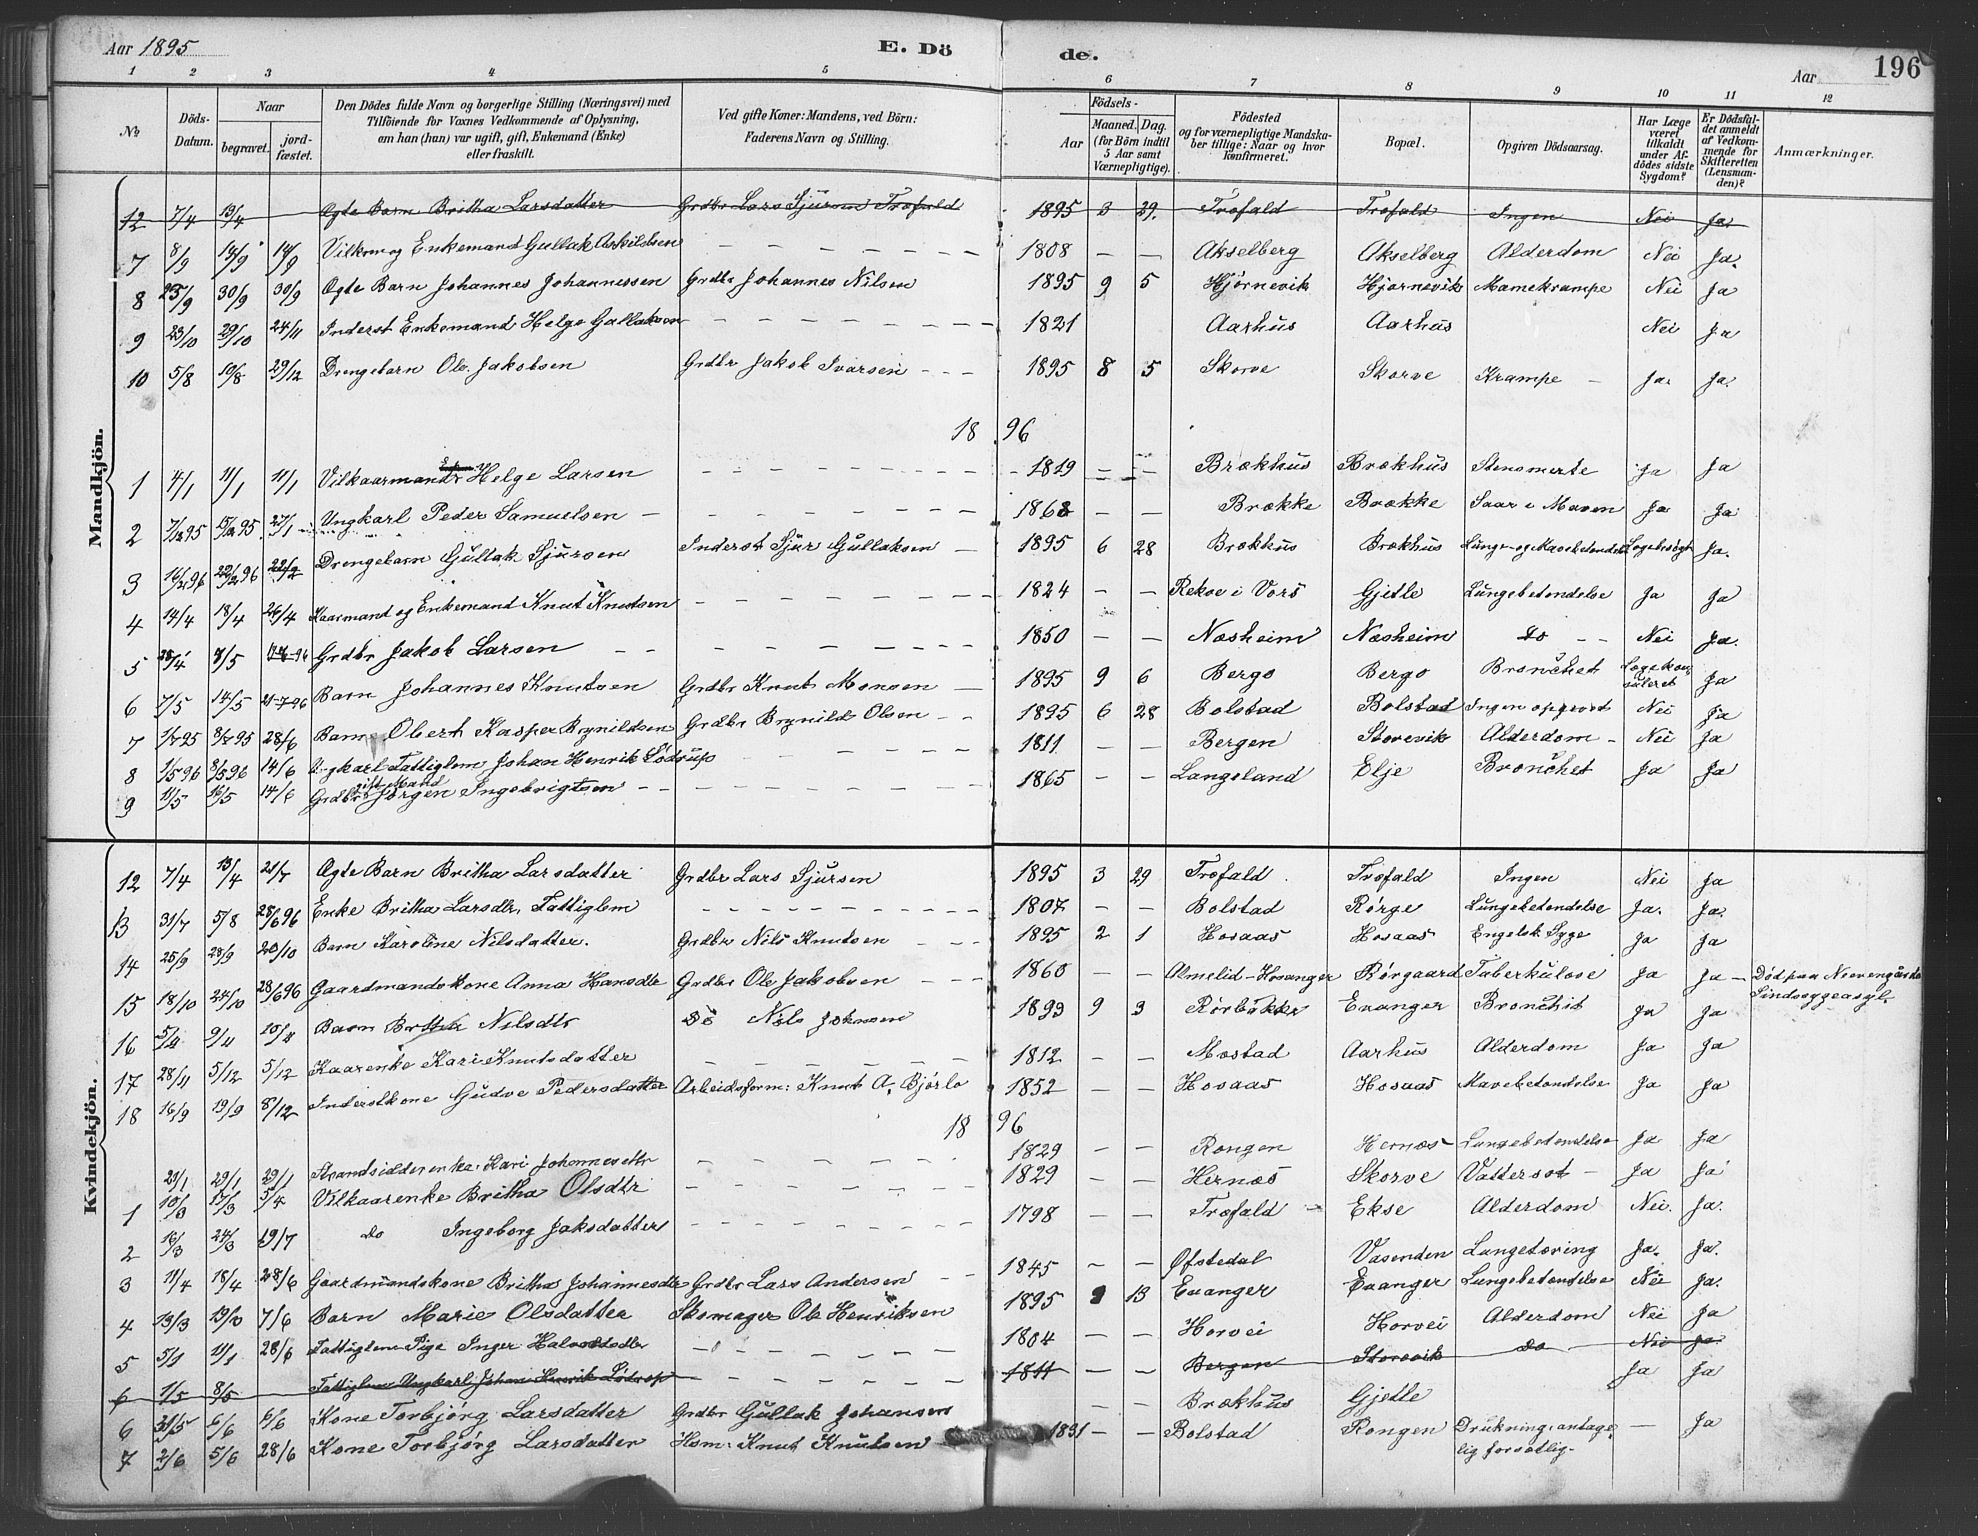 Aar 1895 E. Dö
de. Aar 196
1 2 3 4 5 6 7 8 9 10 11 12
№ Döds-Datum. Naar begravet. jordfæstet. Den Dödes fulde Navn og borgerlige Stilling (Næringsvei) med Tilföiende for Voxnes Vedkommende af Oplysning, om han (hun) var ugift, gift, Enkemand (Enke) eller fraskilt. Ved gifte Koner: Mandens, ved Börn: Faderens Navn og Stilling. Födsels- Aar Maaned. Dag. (for Börn indtil 5 Aar samt Værnepligtige). Födested og for værnepligtige Mandskaber tillige: Naar og hvor konfirmeret. Bopæl. Opgiven Dödsaarsag. Har Læge været tilkaldt under Afdödes sidste Sygdom? Er Dödsfaldet anmeldt af Vedkommende for Skifteretten (Lensmanden)? Anmærkninger.
Mandkjön.
12 7/4 13/4 Ægte Barn Britha Larsdatter Grdbr Lars Sjursen Træfald 1895 3 29. Træfald Træfald Ingen Nei Ja.
7 8/9 14/9 14/9 Vilkm og Enkemand Gullak Askildsen — 1808 — — Akselberg Akselberg Alderdom Nei Ja.
8 25/9 30/9 30/9 Ægte Barn Johannes Johannessen Grdbr Johannes Nilsen 1895 9 5 Hjørnevik Hjørnevik Mavekrampe Nei Ja
9 23/10 29/10 24/11 Inderst Enkemand Helge Gullaksen — 1821 Aarhus Aarhus Nei Ja
10 5/8 10/8 29/12 Drengebarn Ole Jakobsen Grdbr Jakob Ivarsen — 1895 8 5 Skorve Skorve Krampe — Ja. Ja.
18 96
1 4/1 11/1 11/1 Vilkaarmand Helge Larsen — 1819 — — Brækhus Brækhus Stensmerte Ja Ja
2 7/12 95 15/12 95 27/1 Ungkarl Peder Samuelsen — 1868 — — Brække Brække Saar i Maven Ja Ja
3 16/2 96 22/2 96 22/2 Drengebarn Gullak Sjursen Inderst Sjur Gullaksen — 1895 6 28 Brækhus Brækhus Lunge- og Mavebetændelse Lægesøgt Ja.
4 14/4 18/4 26/4 Kaarmand og Enkemand Knut Knutsen — 1824 — — Rekve i Vors Gjetle Lungebetændelse Ja Ja
5 28/4 /5 Grdbr Jakob Larsen — 1850 — — Næsheim Næsheim do — Nei Ja.
6 7/5 14/5 21-7-96 Barn Johannes Knutsen Grdbr Knut Monsen — 1895 9 6 Bergo Bergo Bronchit Læge konsuleret Ja
7 8/ 95 28/6 Barn Obert Kasper Brynildsen Grdbr Brynild Olsen — 1895 6 28 Bolstad Bolstad Ingen opgivet Nei Ja
8 1/5 96 8/5 96 14/6 Ungkarl Fattiglem Johan Henrik Lødrup — 1811 — — Bergen Storevik Alderdom — Nei Ja
9 11/5 16/5 14/6 Grdbr gift Mand Jørgen Ingebrigtsen — 1865 — — Langeland Elje Bronchit Ja Ja
Kvindekjön.
12 7/4 13/4 21/7 Ægte Barn Britha Larsdatter Grdbr Lars Sjursen 1895 3 29 Træfald Træfald Ingen Nei Ja
13 31/7 5/8 28/6 96 Enke Britha Larsdtr. Fattiglem — 1807 — — Bolstad Rørge Lungebetændelse Ja. Ja.
14 25/9 28/9 20/10 Barn Karoline Nilsdatter. Grdbr Nils Knutsen — 1895 2 1 Hosaas Hosaas Engelsk Syge Ja Ja
15 18/10 24/10 28/6 96 Gaardmandskone Anna Hansdtr Grdbr Ole Jakobsen — 1860 — — Almelid - Hosanger Børgaard Tuberkulose Ja Ja — Død paa Neevengaards Sindssygeasyl.
16 5/4 9/4 Barn Nilsdtr do Nils Johnsen 1893 9 3 Rørbakke Evanger Bronchit Ja Ja
17 28/11 5/12 5/12 Kaarenke Kari Knutsdatter — 1812 — — Mestad Aarhus Alderdom Ja Ja
18 16/9 19/9 8/12 Inderstkone Gudve Pedersdatter Arbeidsform: Knut A. Bjørlo 1852 — — Hosaas Hosaas Mavebetændelse Ja Ja
18 96
21/1 29/1 29/1 Strandsidderenke Kari Johannesdtr — 1829 — — Rongen Hernæs Lungebetændelse Ja Ja
1 10/3 17/3 5/4 Vilkaarenke Britha Olsdtr — 1829 — — Hernæs Skorve Vattersot — Ja Ja
2 16/3 24/3 19/7 do Ingeborg Jaksdatter — 1798 — — Træfald — Ekse Alderdom Nei. Ja.
3 11/4 18/4 28/6 Gaardmandskone Britha Johannesdtr Grdbr Lars Andersen — 1845 — — Øfstedal Vasenden Lungetæring Ja. Ja.
4 13/3 19/3 7/6 Barn Marie Olsdatter Skomager Ole Henriksen 1895 9 13 Evanger Evanger Lungebetændelse Nei Ja.
5 5/1 11/1 28/6 Fattiglem Pige Inger — 1804 — — Horvei Horvei Alderdom Nei Ja
6 1/5 8/5 Fattiglem Ungkarl Johan Henrik Lødrup — 1811 — — Bergen Storevik do Nei Ja
6 31/5 6/6 6/6 Kone Torbjørg Larsdatter Grdbr Gullak Johansen — — Brækhus Gjetle Ja Ja
7 2/6 5/6 28/6 Kone Torbjørg Larsdatter Hsm. Knut Knutsen 1831 — — Bolstad Rongen Drukning, antagelig forsætlig — — Ja